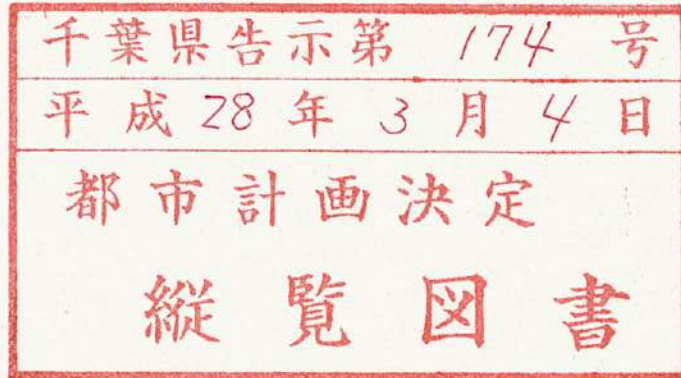 千葉県告示第 174 号
平成 28 年 3 月 4 日
都市計画決定
縦覧図書